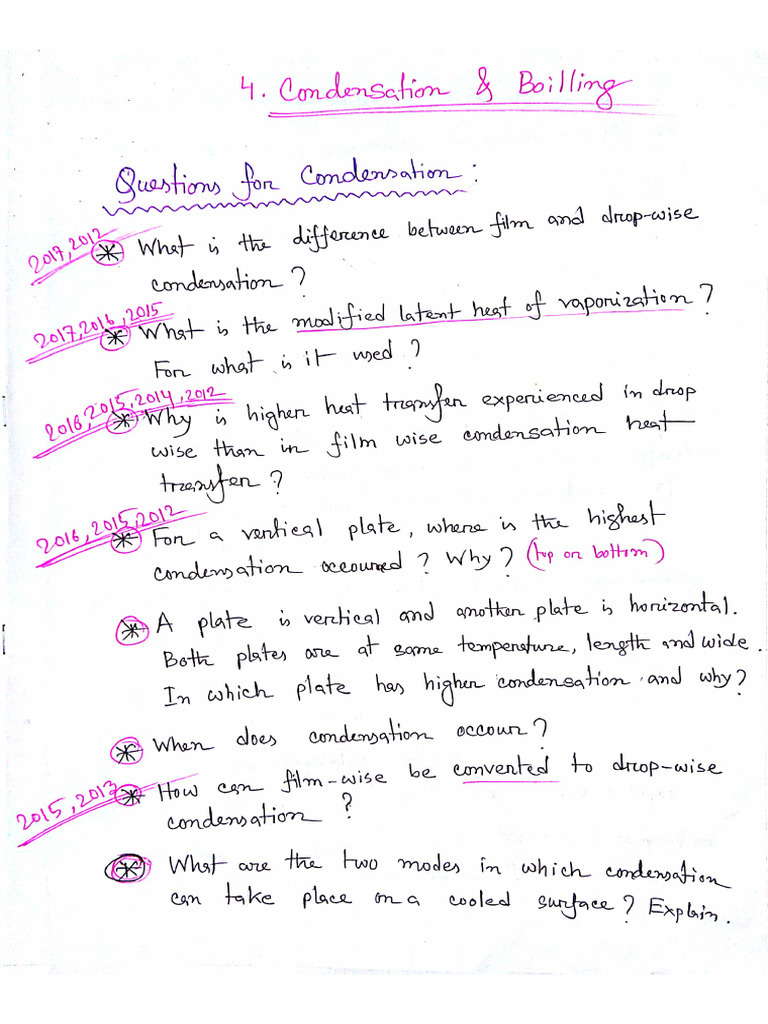 4. Condensation & Boilling
Questions for Condensation :
2017, 2012
* What is the difference between film and drop-wise
condensation ?
2017, 2016, 2015
* What is the modified latent heat of vaporization ?
For what is it used ?
2016, 2015, 2014, 2012
* Why is higher heat transfer experienced in drop
wise than in film wise condensation heat
transfer ?
2016, 2015, 2012
* For a vertical plate, where is the highest
condensation occoured ? Why ? (top or bottom)
* A plate is vertical and another plate is horizontal.
Both plates are at same temperature, length and wide.
In which plate has higher condensation and why ?
* When does condensation occour ?
2015, 2013
* How can film-wise be converted to drop-wise
condensation ?
* What are the two modes in which condensation
can take place on a cooled surface ? Explain.